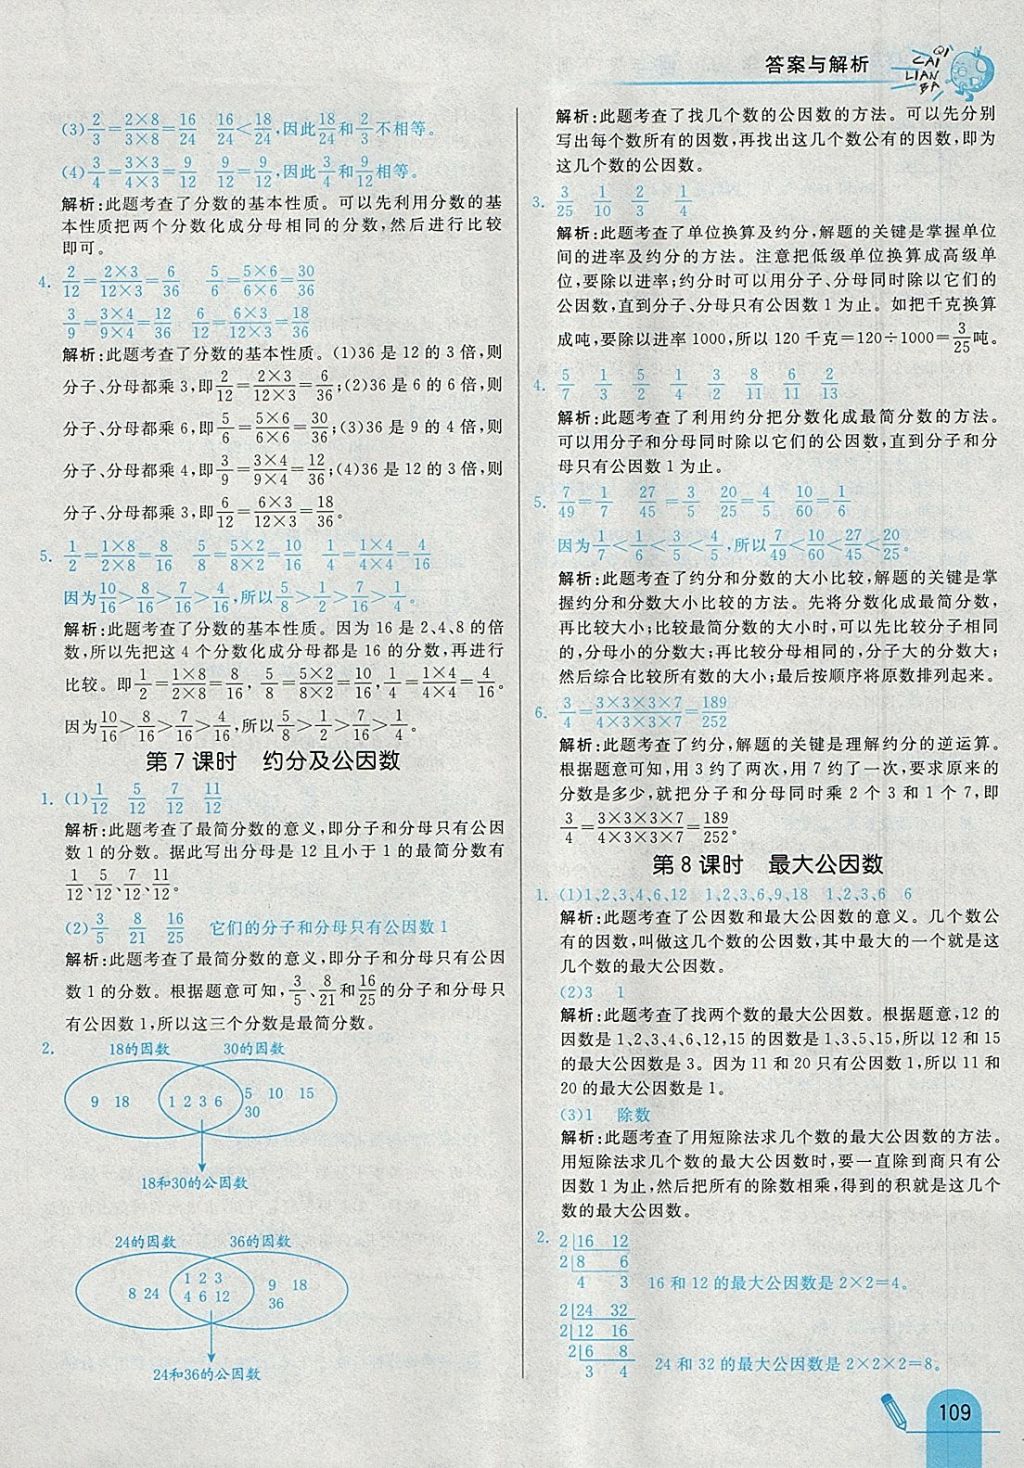 答案与解析
QI
CAI
LIAN
BA
(3)2/3=2×8/3×8=16/24 16/24<18/24,因此18/24和2/3不相等。
(4)3/4=3×3/4×3=9/12 9/12=9/12,因此3/4和9/12相等。
解析:此题考查了分数的基本性质。可以先利用分数的基
本性质把两个分数化成分母相同的分数,然后进行比较
即可。
4. 2/12=2×3/12×3=6/36 5/6=5×6/6×6=30/36
3/9=3×4/9×4=12/36 6/12=6×3/12×3=18/36
解析:此题考查了分数的基本性质。(1)36是12的3倍,则
分子、分母都乘3,即2/12=2×3/12×3=6/36;(2)36是6的6倍,则
分子、分母都乘6,即5/6=5×6/6×6=30/36;(3)36是9的4倍,则
分子、分母都乘4,即3/9=3×4/9×4=12/36;(4)36是12的3倍,则
分子、分母都乘3,即6/12=6×3/12×3=18/36。
5. 1/2=1×8/2×8=8/16 5/8=5×2/8×2=10/16 1/4=1×4/4×4=4/16
因为10/16>8/16>7/16>4/16,所以5/8>1/2>7/16>1/4。
解析:此题考查了分数的基本性质。因为16是2、4、8的倍
数,所以先把这4个分数化成分母都是16的分数,再进行
比较。即1/2=1×8/2×8=8/16,5/8=5×2/8×2=10/16,1/4=1×4/4×4=4/16。
因为10/16>8/16>7/16>4/16,所以5/8>1/2>7/16>1/4。
第7课时 约分及公因数
1. (1)1/12 5/12 7/12 11/12
解析:此题考查了最简分数的意义,即分子和分母只有公因
数1的分数。据此写出分母是12且小于1的最简分数有
1/12、5/12、7/12、11/12。
(2)3/5 8/21 16/25 它们的分子和分母只有公因数1
解析:此题考查了最简分数的意义,即分子和分母只有公因
数1的分数。根据题意可知,3/5、8/21和16/25的分子和分母只
有公因数1,所以这三个分数是最简分数。
2. 18的因数 30的因数
9 18 1 2 3 6 5 10 15
30
18和30的公因数
24的因数 36的因数
8 24 1 2 3 9 18
4 6 12 36
24和36的公因数
解析:此题考查了找几个数的公因数的方法。可以先分别
写出每个数所有的因数,再找出这几个数公有的因数,即为
这几个数的公因数。
3. 3/25 1/10 2/3 1/4
解析:此题考查了单位换算及约分,解题的关键是掌握单位
间的进率及约分的方法。注意把低级单位换算成高级单
位,要除以进率;约分时可以用分子、分母同时除以它们的
公因数,直到分子、分母只有公因数1为止。如把千克换算
成吨,要除以进率1000,所以120千克=120÷1000=3/25吨。
4. 5/7 1/3 5/2 1/4 3/2 8/11 6/11 2/13
解析:此题考查了利用约分把分数化成最简分数的方法。
可以用分子和分母同时除以它们的公因数,直到分子和分
母只有公因数1为止。
5. 7/49=1/7 27/45=3/5 20/25=4/5 10/60=1/6
因为1/7<1/6<3/5<4/5,所以7/49<10/60<27/45<20/25。
解析:此题考查了约分和分数的大小比较,解题的关键是掌
握约分和分数大小比较的方法。先将分数化成最简分数,
再比较大小;比较最简分数的大小时,可以先比较分子相同
的,分母小的分数大;再比较分母相同的,分子大的分数大;
然后综合比较所有数的大小;最后按顺序将原数排列起来。
6. 3/4=3×3×3×7/4×3×3×7=189/252
解析:此题考查了约分,解题的关键是理解约分的逆运算。
根据题意可知,用3约了两次,用7约了一次,要求原来的
分数是多少,就把分子和分母同时乘2个3和1个7,即
3/4=3×3×3×7/4×3×3×7=189/252。
第8课时 最大公因数
1. (1)1,2,3,4,6,12 1,2,3,6,9,18 1,2,3,6 6
解析:此题考查了公因数和最大公因数的意义。几个数公
有的因数,叫做这几个数的公因数,其中最大的一个就是这
几个数的最大公因数。
(2)3 1
解析:此题考查了找两个数的最大公因数。根据题意,12的
因数是1、2、3、4、6、12,15的因数是1、3、5、15,所以12和15
的最大公因数是3。因为11和20只有公因数1,所以11和
20的最大公因数是1。
(3)1 除数
解析:此题考查了用短除法求几个数的最大公因数的方法。
用短除法求几个数的最大公因数时,要一直除到商只有公
因数1为止,然后把所有的除数相乘,得到的积就是这几个
数的最大公因数。
2. 2|16 12
2|8 6
4 3 16和12的最大公因数是2×2=4。
2|24 32
2|12 16
2|6 8
3 4 24和32的最大公因数是2×2×2=8。
109